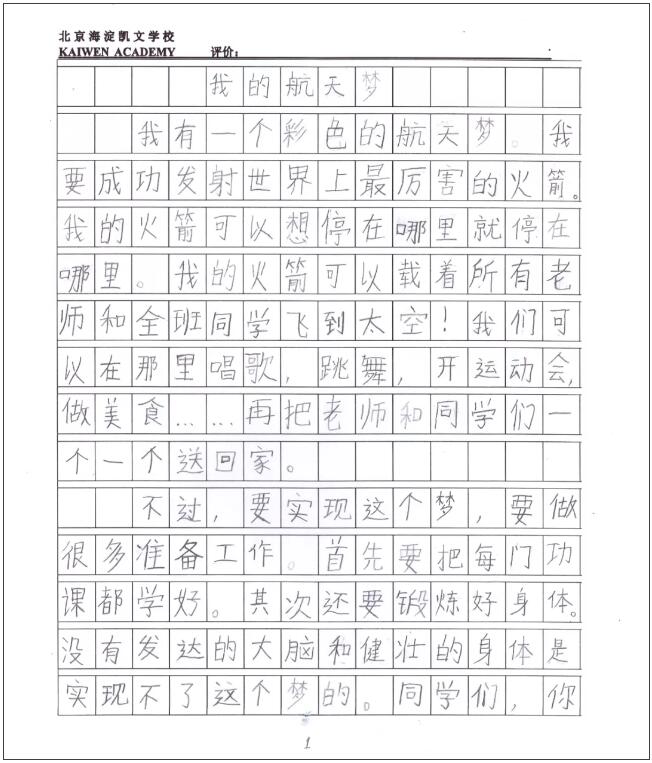 北京海淀凯文学校
KAIWEN ACADEMY 评价:
我的航天梦
我有一个彩色的航天梦。我
要成功发射世界上最厉害的火箭。
我的火箭可以想停在哪里就停在
哪里。我的火箭可以载着所有老
师和全班同学飞到太空!我们可
以在那里唱歌,跳舞,开运动会,
做美食……再把老师和同学们一
个一个送回家。
不过,要实现这个梦,要做
很多准备工作。首先要把每门功
课都学好。其次还要锻炼好身体。
没有发达的大脑和健壮的身体是
实现不了这个梦的。同学们,你
1